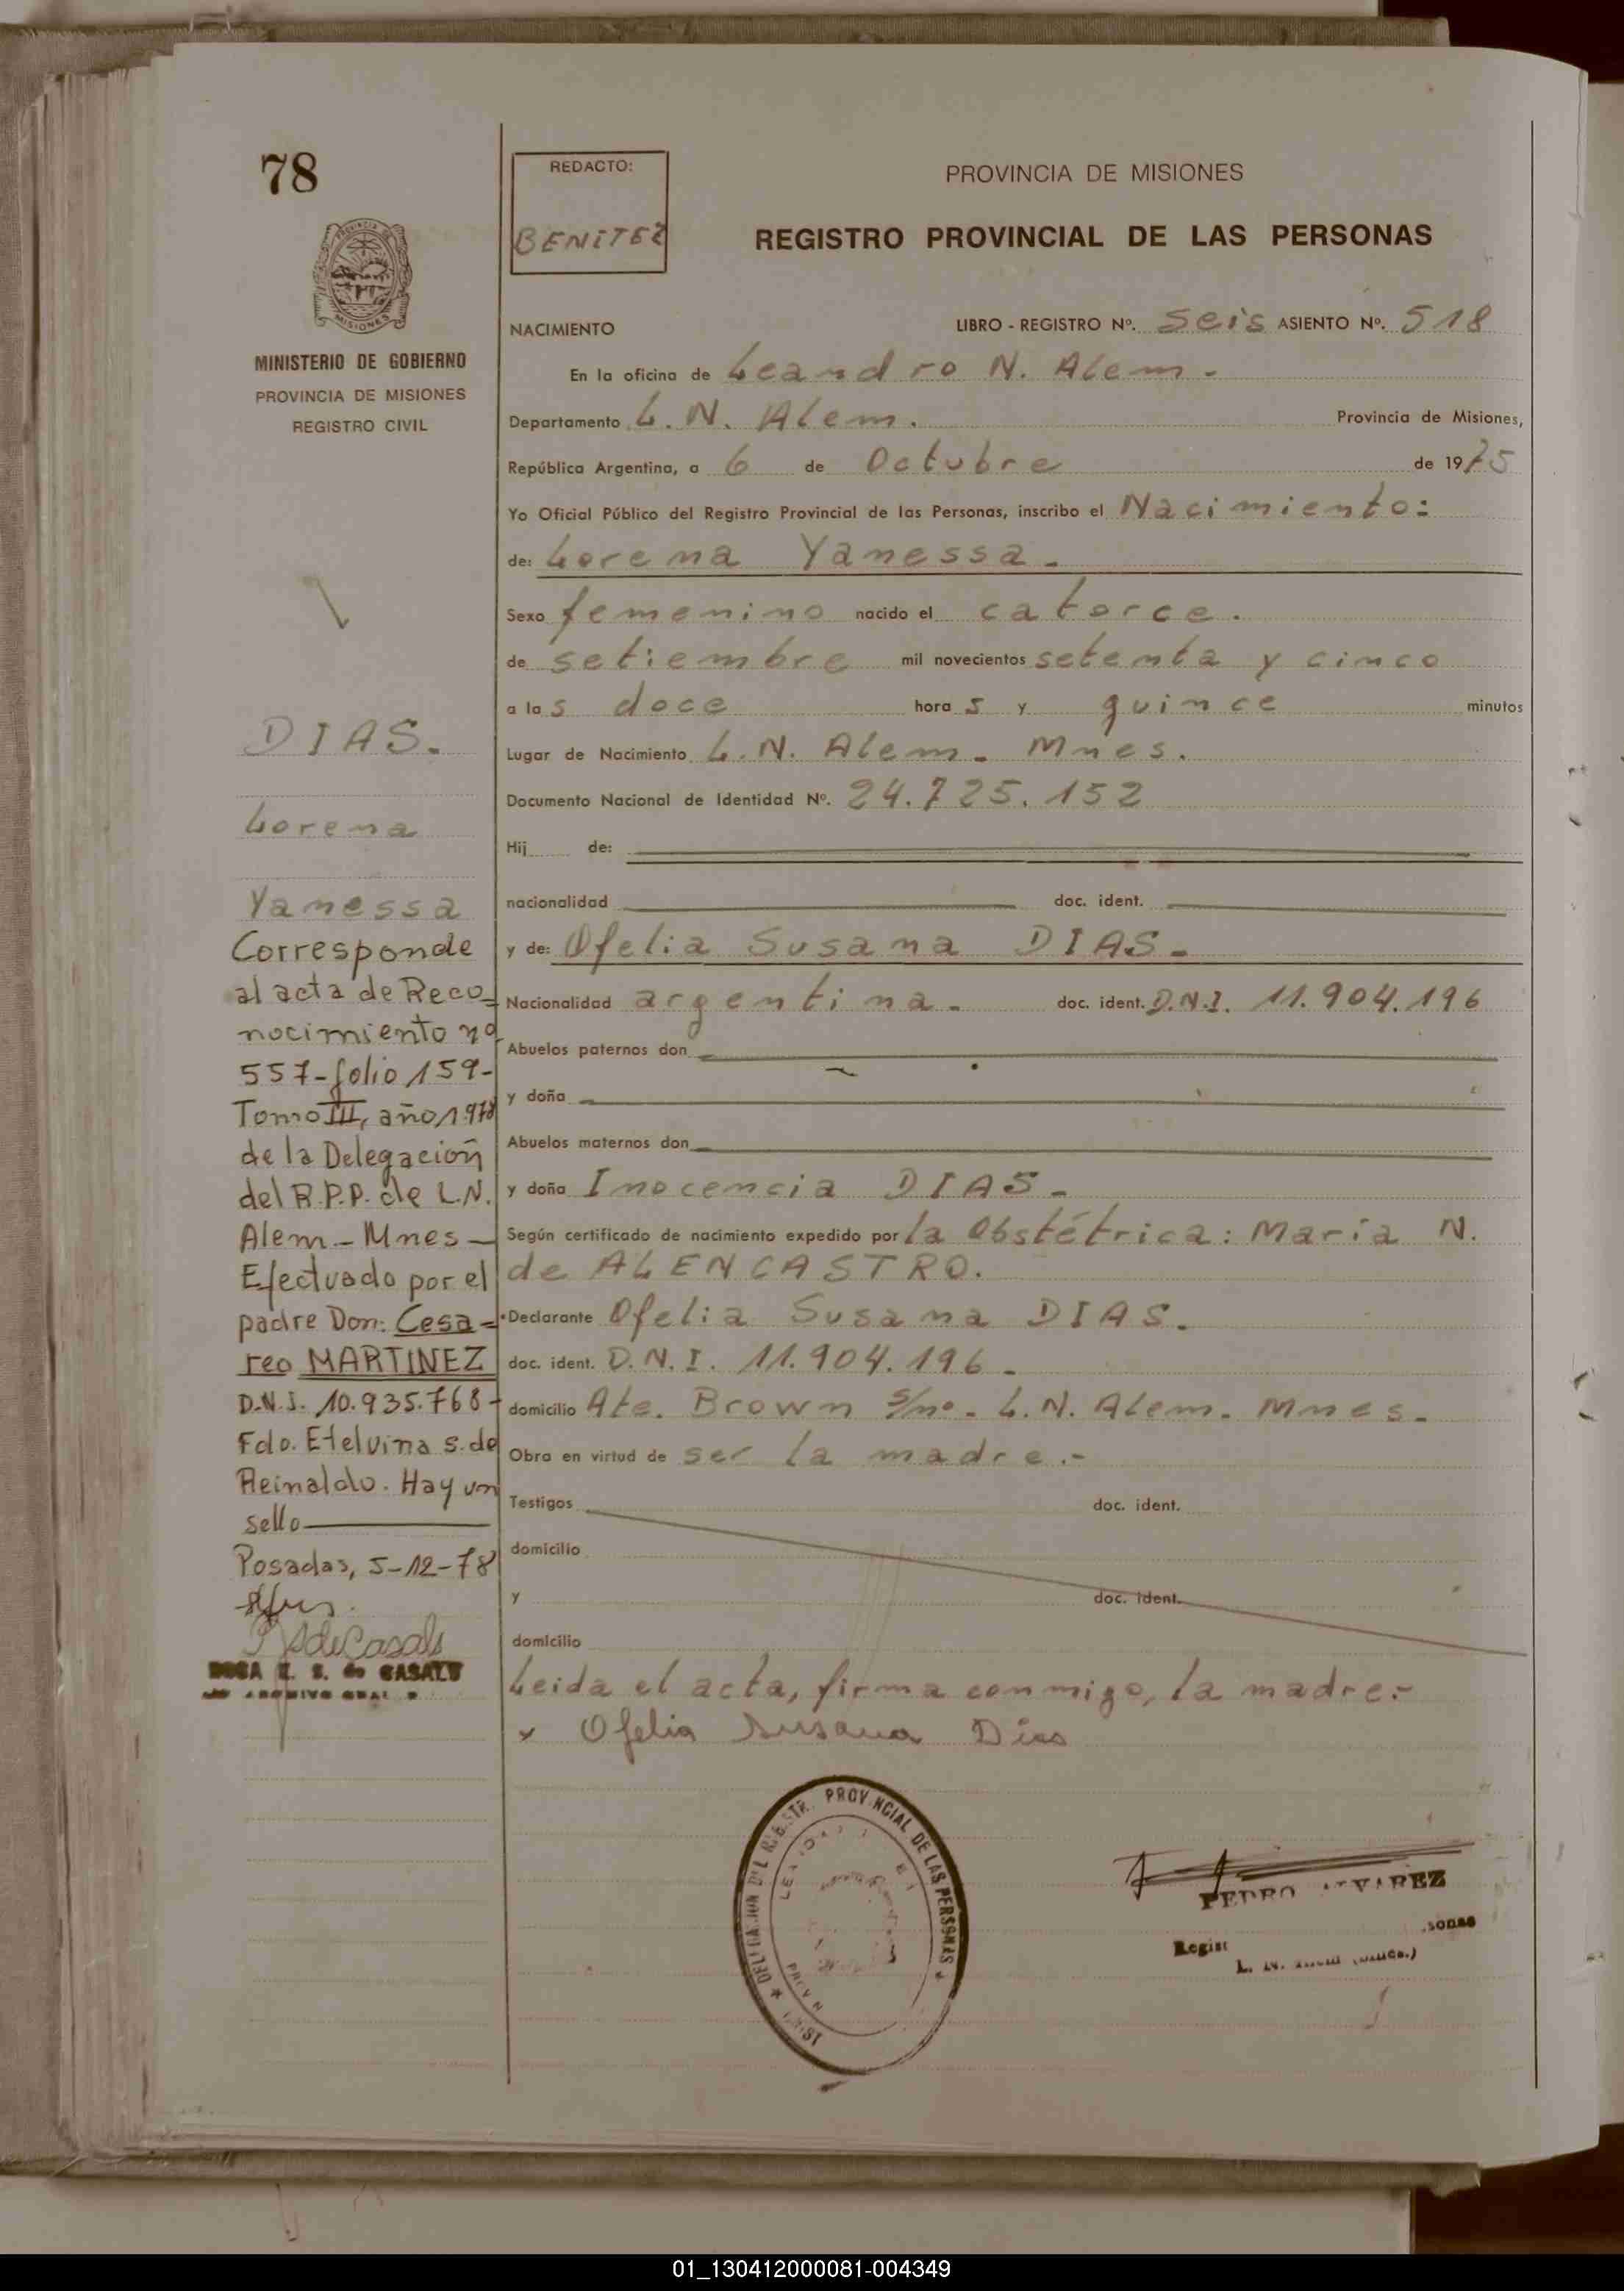 78
REDACTO:
BENITEZ
PROVINCIA DE MISIONES
REGISTRO PROVINCIAL DE LAS PERSONAS
MISIONES
MINISTERIO DE GOBIERNO
PROVINCIA DE MISIONES
REGISTRO CIVIL
NACIMIENTO
LIBRO - REGISTRO Nº. Seis ASIENTO Nº. 518
En la oficina de Leandro N. Alem.
Departamento L. N. Alem. Provincia de Misiones,
República Argentina, a 6 de Octubre de 1975
Yo Oficial Público del Registro Provincial de las Personas, inscribo el Nacimiento:
de: Lorena Yanessa.
Sexo femenino nacido el catorce.
de setiembre mil novecientos setenta y cinco
a las doce horas y quince minutos
Lugar de Nacimiento L. N. Alem. Mnes.
Documento Nacional de Identidad Nº. 24.725.152
Hij de:
nacionalidad doc. ident.
y de: Ofelia Susana DIAS.
Nacionalidad argentina. doc. ident. D.N.I. 11.904.196
Abuelos paternos don
y doña
Abuelos maternos don
y doña Inocencia DIAS.
Según certificado de nacimiento expedido por la Obstétrica: María N.
de ALENCASTRO.
Declarante Ofelia Susana DIAS.
doc. ident. D.N.I. 11.904.196.
domicilio Ate. Brown s/nº. L.N. Alem. Mnes.
Obra en virtud de ser la madre.-
Testigos doc. ident.
domicilio
y doc. ident.
domicilio
Leida el acta, firma conmigo, la madre.-
x Ofelia Susana Dias
DIAS.
Lorena
Yanessa
Corresponde
al acta de Reco-
nocimiento nº
557-folio 159-
Tomo III, año 1.978
de la Delegación
del R.P.P. de L.N.
Alem - Mnes -
Efectuado por el
padre Don: Cesa=
reo MARTINEZ
D.N.I. 10.935.768-
Fdo. Etelvina S. de
Reinaldo. Hay un
sello
Posadas, 5-12-78
de CASALS
PROVINCIAL DE LAS PERSONAS
PEDRO ALVAREZ
L. N. Alem (Mnes.)
01_130412000081-004349